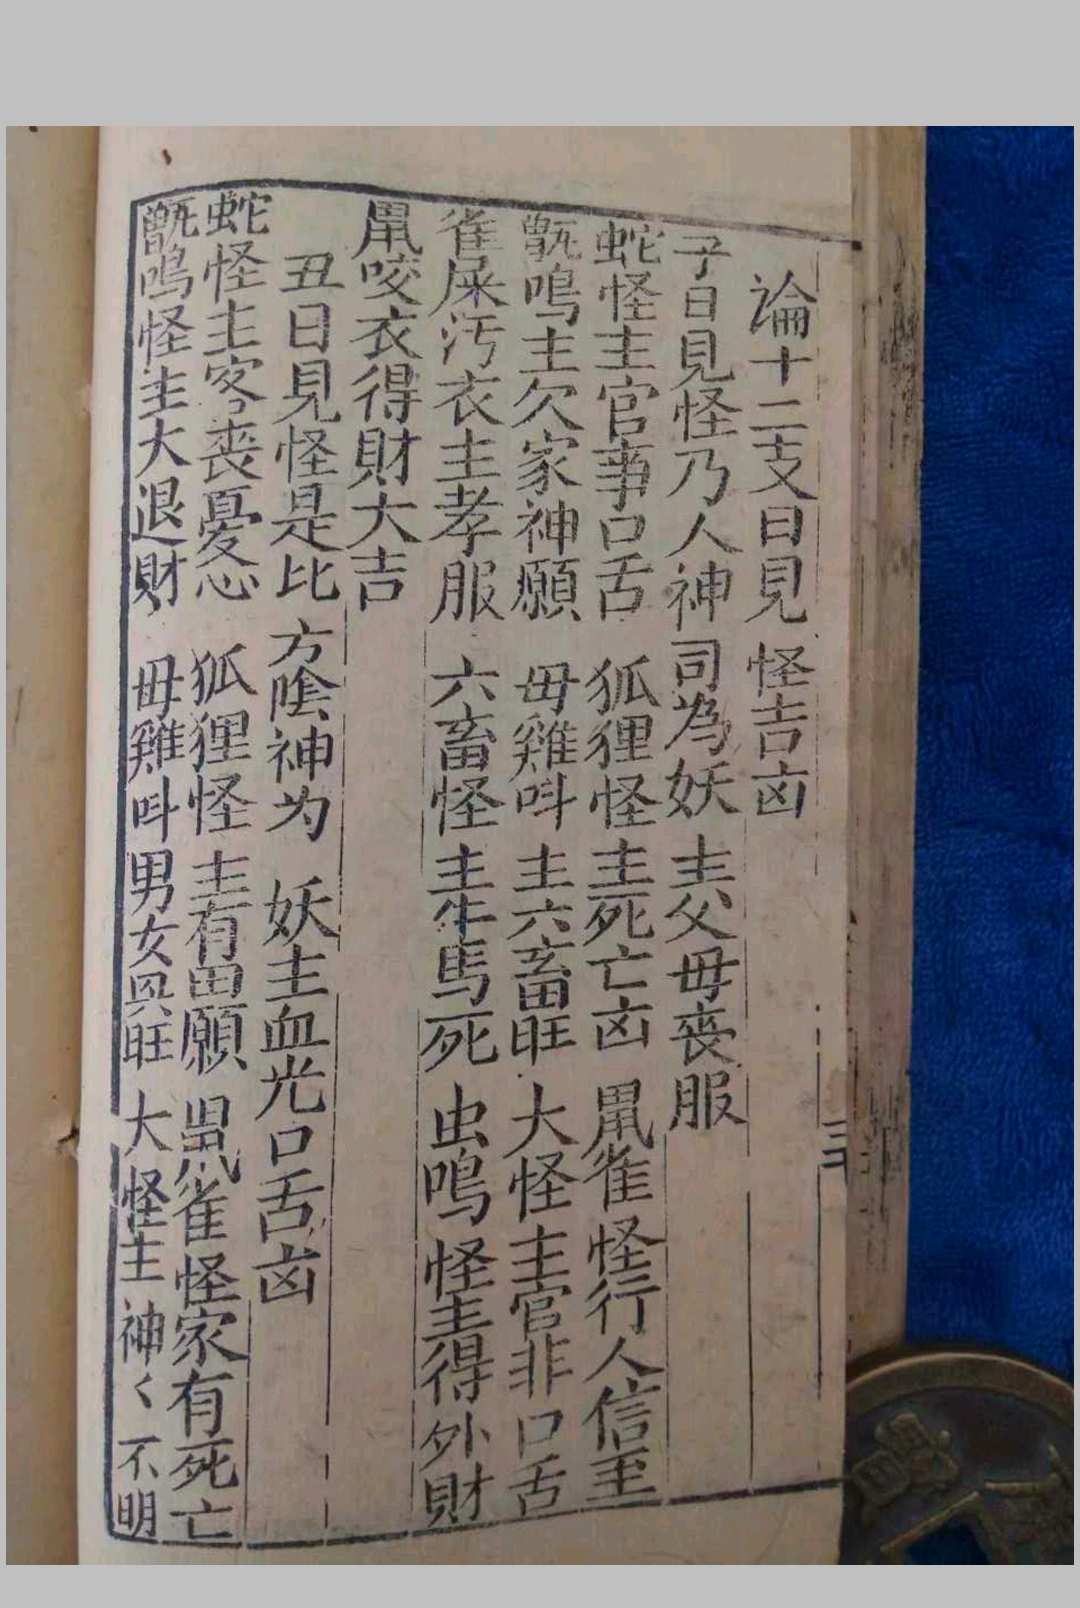 論十二支日見怪吉凶
子日見怪乃人神司為妖主父母丧服
蛇怪主官事口舌 狐狸怪主死亡凶 鼠雀怪行人信至
甑鳴主欠家神願 毋雞呌主六畜旺 大怪主官非口舌
雀屎汚衣主孝服 六畜怪主牛馬死 虫鳴怪主得外財
鼠咬衣得財大吉
丑日見怪是比方隂神为妖主血光口舌凶
蛇怪主客丧憂心 狐狸怪主有田願 鼠雀怪家有死亡
甑鳴怪主大退財 毋雞呌男女興旺 大怪主神〻不明
三